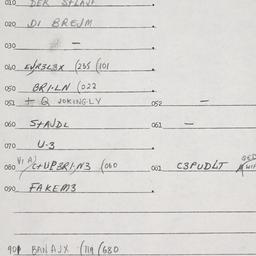 010 DER SFLAVF
020 DI BREJM
030 -
040 EJR3L3X (235 (101
050 BRI-LN (022
051 + Q JOKINGLY 052 -
060 STAJDL 061 -
070 U-3
080 060 081 C3PUDLT
090 FAKEM3
901 BANAJX (119 (680